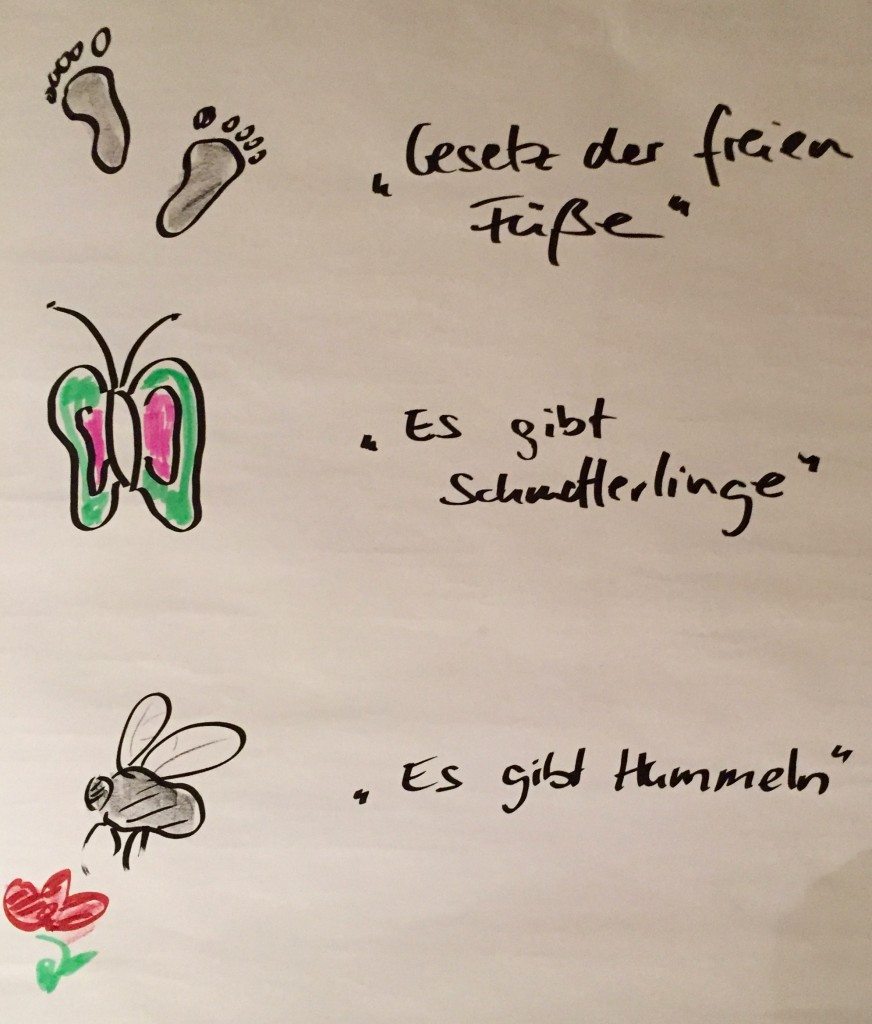 „Gesetz der freien
Füße“
„Es gibt
Schmetterlinge“
„Es gibt Hummeln“